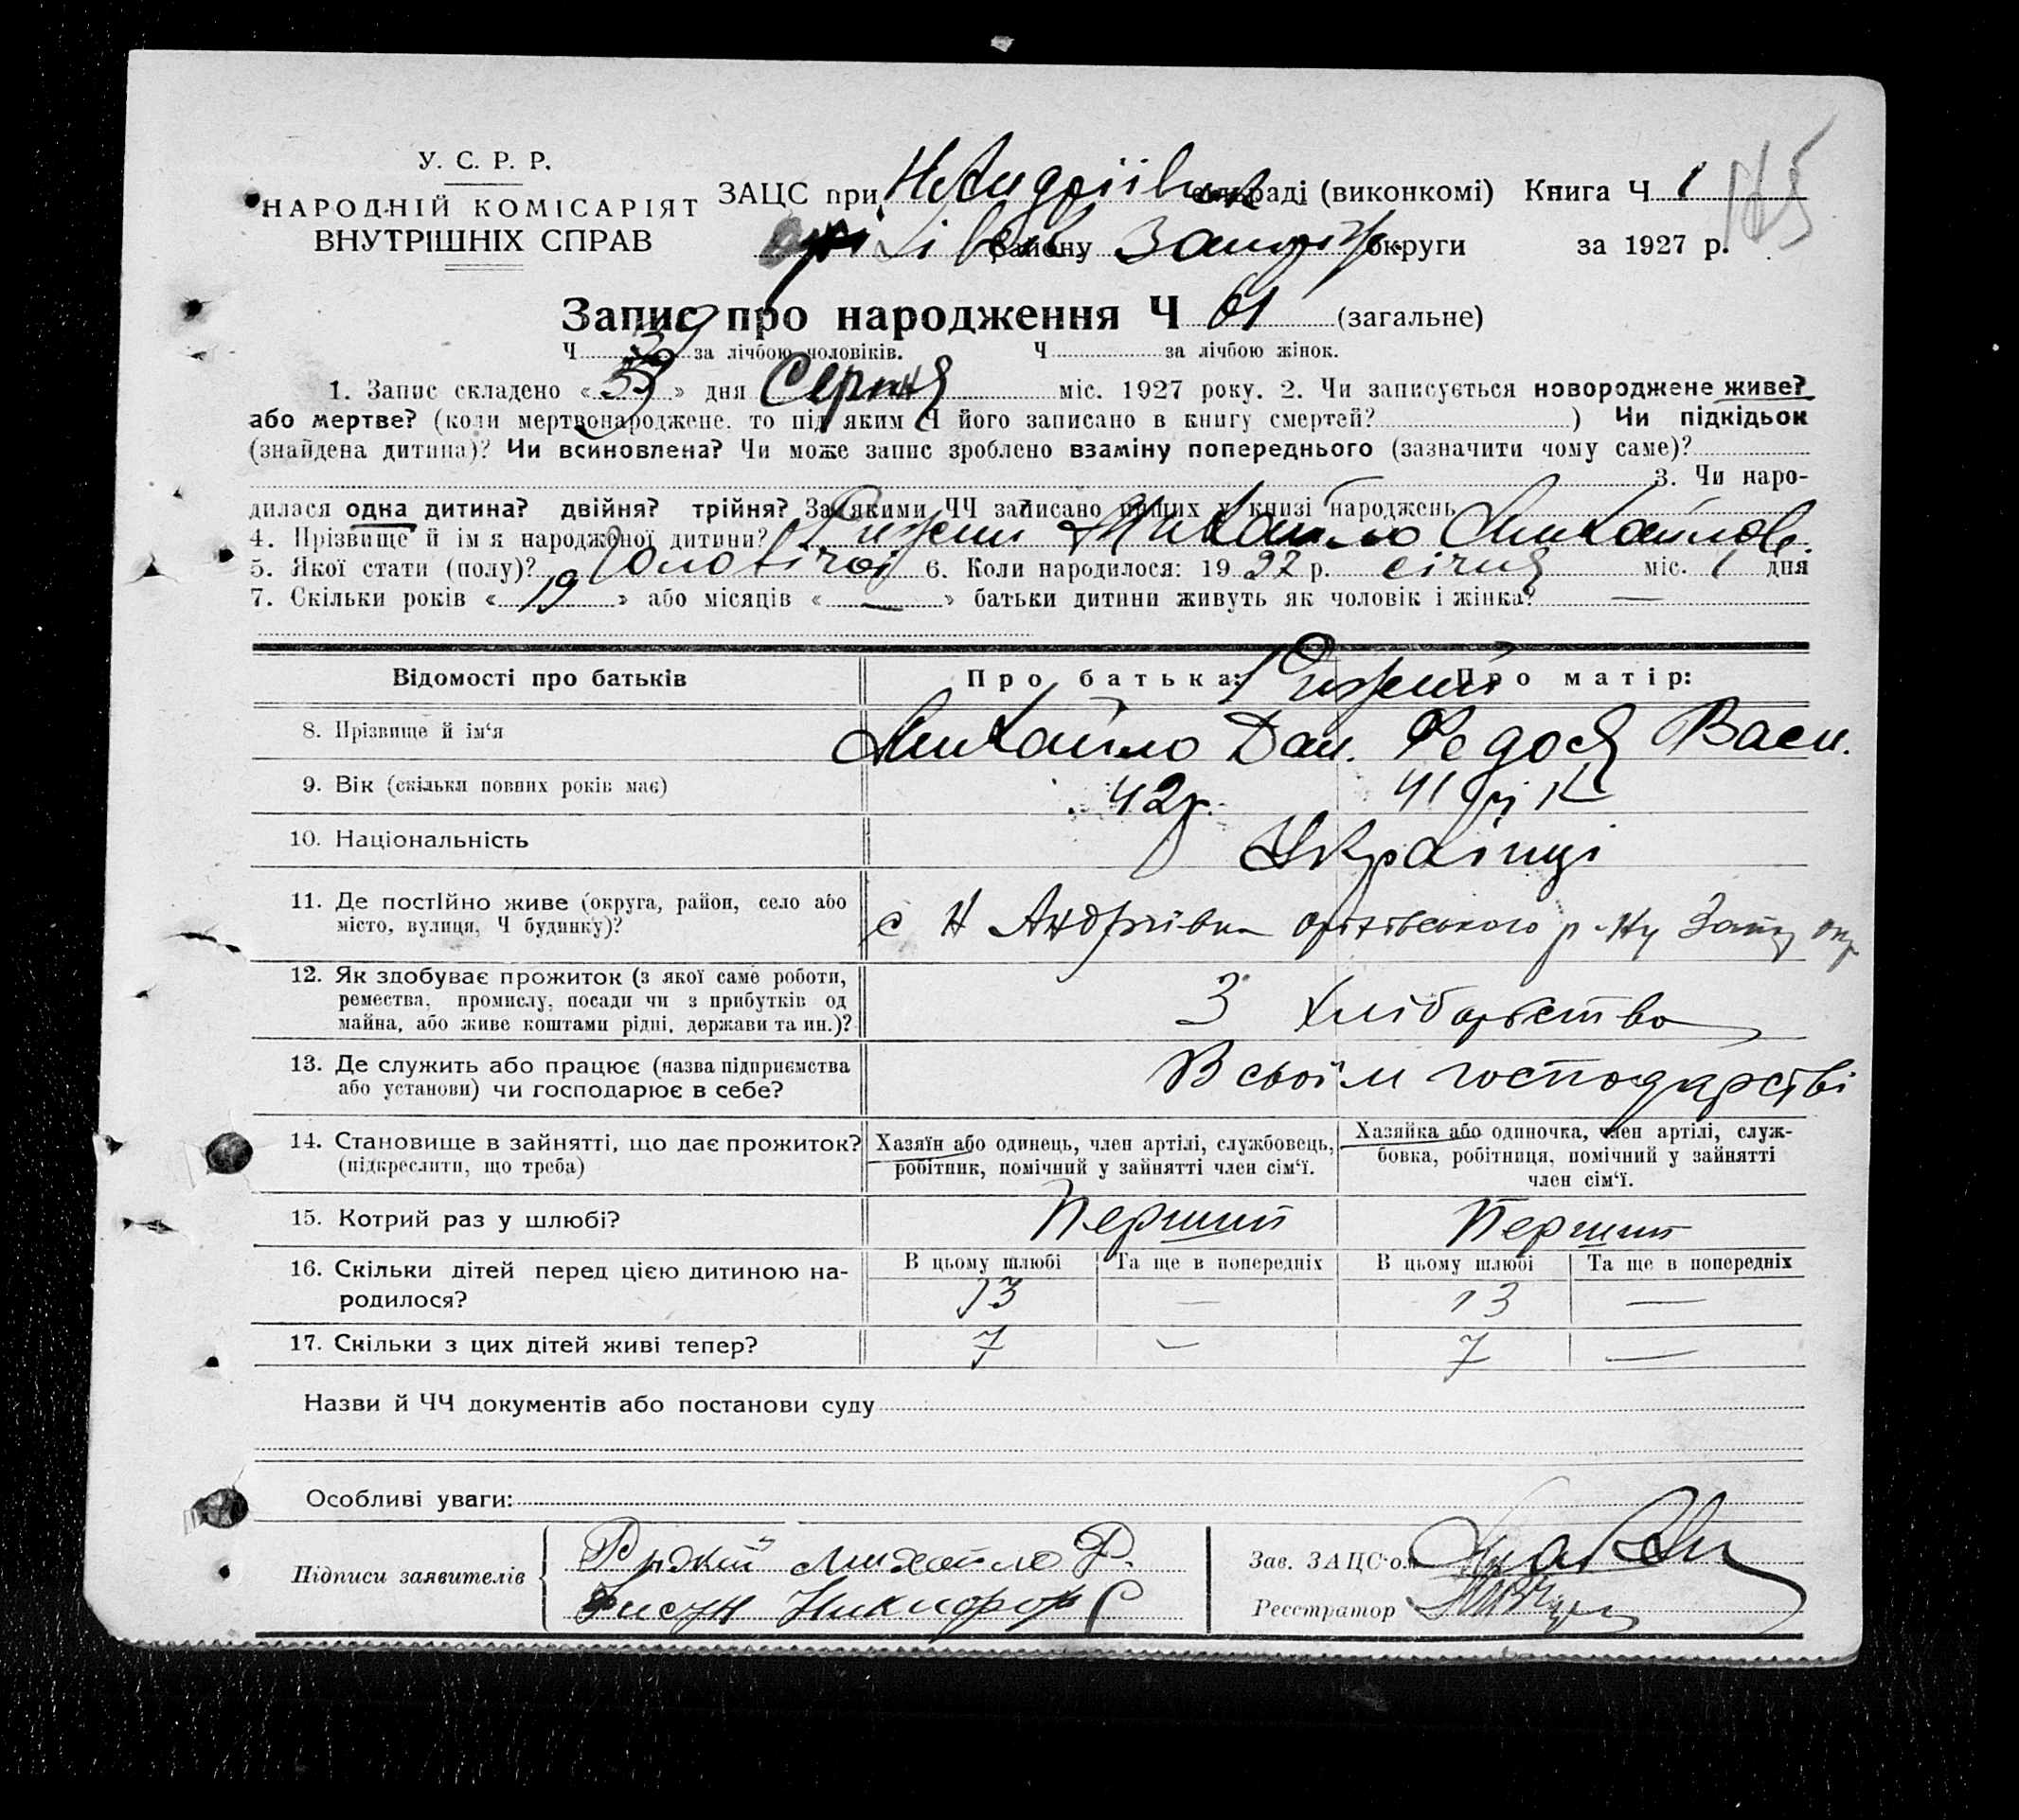 У. С. Р. Р.
НАРОДНІЙ КОМІСАРІЯТ
ВНУТРІШНІХ СПРАВ
ЗАЦС при Н Андріівск раді (виконкомі) Книга Ч 1
165
району Запоріж. округи за 1927 р.
Запис про народження Ч 61 (загальне)
Ч 39 за лічбою чоловіків. Ч за лічбою жінок.
1. Запис складено « » дня Серпня міс. 1927 року. 2. Чи записується новороджене живе?
або мертве? (коли мертвонароджене. то під яким Ч його записано в книгу смертей? ) Чи підкідьок
(знайдена дитина)? Чи всиновлена? Чи може запис зроблено взаміну попереднього (зазначити чому саме)?
3. Чи наро-
дилася одна дитина? двійня? трійня? За якими ЧЧ записано инших у книзі народжень
4. Прізвище й ім я народженої дитини? Рижий Михайло Михайлов.
5. Якої стати (полу)? Чоловічоі 6. Коли народилося: 1927 р. січня міс. 1 дня
7. Скільки років « 19 » або місяців « — » батьки дитини живуть як чоловік і жінка? —
Відомості про батьків Про батька: Про матір:
Рижий
8. Прізвище й ім‘я Михайло Дан. Федося Васи.
9. Вік (скільки повних років має) 42р. 41 рік
10. Національність Українці
11. Де постійно живе (округа, район, село або
місто, вулиця, Ч будинку)?
с Н Андріівка оріхівського р-ну Запор окр
12. Як здобуває прожиток (з якої саме роботи,
ремества, промислу, посади чи з прибутків од
майна, або живе коштами рідні, держави та ин.)?
З хліборобства
13. Де служить або працює (назва підприємства
або установи) чи господарює в себе?
В своїм господарстві
14. Становище в зайнятті, що дає прожиток?
(підкреслити, що треба)
Хазяїн або одинець, член артілі, службовець,
робітник, помічний у зайнятті член сім‘ї.
Хазяйка або одиночка, член артілі, служ-
бовка, робітниця, помічний у зайнятті
член сім‘ї.
15. Котрий раз у шлюбі? Перший Перший
16. Скільки дітей перед цією дитиною на-
родилося?
В цьому шлюбі Та ще в попередніх В цьому шлюбі Та ще в попередніх
13 — 13 —
17. Скільки з цих дітей живі тепер? 7 — 7 —
Назви й ЧЧ документів або постанови суду
Особливі уваги:
Підписи заявителів
Рижий Михайло
Лисун Никифор
Зав. ЗАЦС‘ом
Реєстратор